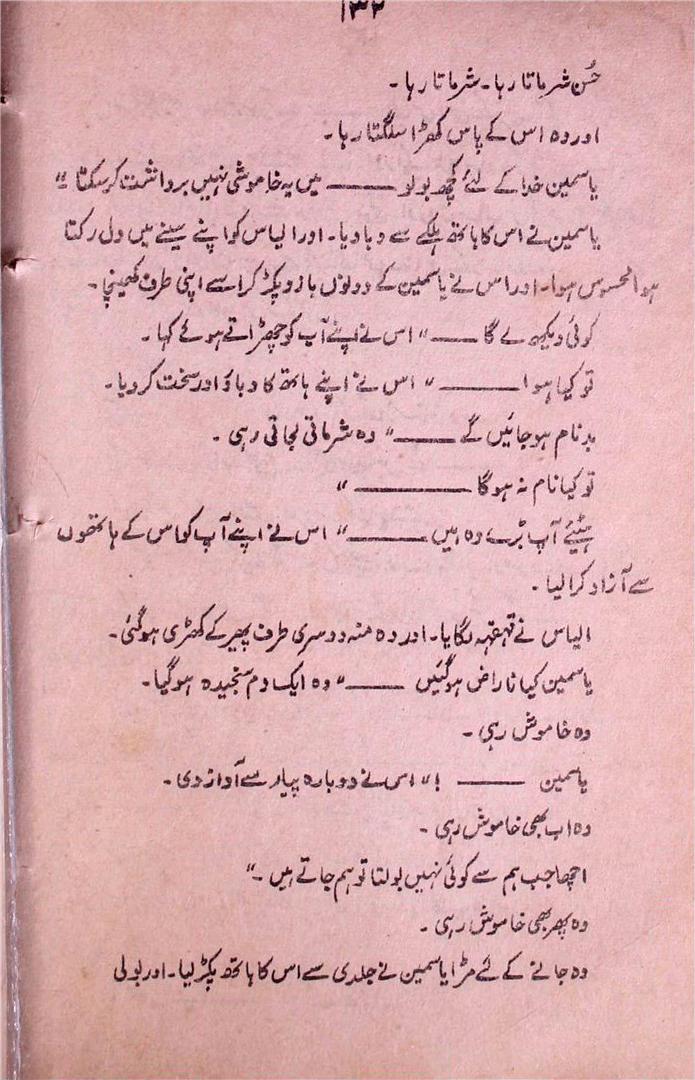 ۱۳۲
حُسن شرماتا رہا۔ شرماتا رہا۔
اور وہ اس کے پاس کھڑا سلگتا رہا۔
یاسمین خدا کے لئے کچھ بولو ——— میں یہ خاموشی نہیں برداشت کر سکتا"
یاسمین نے اس کا ہاتھ ہلکے سے دبا دیا۔ اور الیاس کو اپنے سینے میں دل رکتا
ہوا محسوس ہوا۔ اور اس نے یاسمین کے دونوں بازو پکڑ کر اسے اپنی طرف کھینچا۔
کوئی دیکھ لے گا ——— " اس نے اپنے آپ کو چھڑاتے ہوئے کہا۔
تو کیا ہوا ——— " اس نے اپنے ہاتھ کا دباؤ اور سخت کر دیا۔
بدنام ہو جائیں گے ——— " وہ شرماتی لجاتی رہی۔
تو کیا نام نہ ہوگا ——— "
ہٹیئے آپ بڑے وہ ہیں ——— " اس نے اپنے آپ کو اس کے ہاتھوں
سے آزاد کرا لیا۔
الیاس نے قہقہہ لگایا۔ اور وہ منہ دوسری طرف پھیر کے کھڑی ہوگئی۔
یاسمین کیا ناراض ہوگئیں ——— " وہ ایک دم سنجیدہ ہوگیا۔
وہ خاموش رہی۔
یاسمین ——— !" اس نے دوبارہ پیار سے آواز دی۔
وہ اب بھی خاموش رہی۔
اچھا جب ہم سے کوئی نہیں بولتا تو ہم جاتے ہیں۔"
وہ پھر بھی خاموش رہی۔
وہ جانے کے لئے مڑا یاسمین نے جلدی سے اس کا ہاتھ پکڑ لیا۔ اور بولی